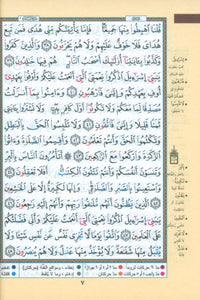 قُلْنَا ٱهْبِطُوا۟ مِنْهَا جَمِيعًا فَإِمَّا يَأْتِيَنَّكُم مِّنِّى هُدًى فَمَن تَبِعَ
هُدَاىَ فَلَا خَوْفٌ عَلَيْهِمْ وَلَا هُمْ يَحْزَنُونَ ٣٨ وَٱلَّذِينَ كَفَرُوا۟
وَكَذَّبُوا۟ بِـَٔايَـٰتِنَآ أُو۟لَـٰٓئِكَ أَصْحَـٰبُ ٱلنَّارِ هُمْ فِيهَا خَـٰلِدُونَ ٣٩
يَـٰبَنِىٓ إِسْرَٰٓءِيلَ ٱذْكُرُوا۟ نِعْمَتِىَ ٱلَّتِىٓ أَنْعَمْتُ عَلَيْكُمْ وَأَوْفُوا۟ بِعَهْدِىٓ
أُوفِ بِعَهْدِكُمْ وَإِيَّـٰىَ فَٱرْهَبُونِ ٤٠ وَءَامِنُوا۟ بِمَآ أَنزَلْتُ
مُصَدِّقًا لِّمَا مَعَكُمْ وَلَا تَكُونُوٓا۟ أَوَّلَ كَافِرٍۭ بِهِۦ وَلَا تَشْتَرُوا۟ بِـَٔايَـٰتِى
ثَمَنًا قَلِيلًا وَإِيَّـٰىَ فَٱتَّقُونِ ٤١ وَلَا تَلْبِسُوا۟ ٱلْحَقَّ بِٱلْبَـٰطِلِ
وَتَكْتُمُوا۟ ٱلْحَقَّ وَأَنتُمْ تَعْلَمُونَ ٤٢ وَأَقِيمُوا۟ ٱلصَّلَوٰةَ وَءَاتُوا۟
ٱلزَّكَوٰةَ وَٱرْكَعُوا۟ مَعَ ٱلرَّٰكِعِينَ ٤٣ أَتَأْمُرُونَ ٱلنَّاسَ بِٱلْبِرِّ
وَتَنسَوْنَ أَنفُسَكُمْ وَأَنتُمْ تَتْلُونَ ٱلْكِتَـٰبَ أَفَلَا تَعْقِلُونَ ٤٤
وَٱسْتَعِينُوا۟ بِٱلصَّبْرِ وَٱلصَّلَوٰةِ وَإِنَّهَا لَكَبِيرَةٌ إِلَّا عَلَى ٱلْخَـٰشِعِينَ
٤٥ ٱلَّذِينَ يَظُنُّونَ أَنَّهُم مُّلَـٰقُوا۟ رَبِّهِمْ وَأَنَّهُمْ إِلَيْهِ رَٰجِعُونَ ٤٦
يَـٰبَنِىٓ إِسْرَٰٓءِيلَ ٱذْكُرُوا۟ نِعْمَتِىَ ٱلَّتِىٓ أَنْعَمْتُ عَلَيْكُمْ وَأَنِّى فَضَّلْتُكُمْ
عَلَى ٱلْعَـٰلَمِينَ ٤٧ وَٱتَّقُوا۟ يَوْمًا لَّا تَجْزِى نَفْسٌ عَن نَّفْسٍ شَيْـًٔا وَلَا
يُقْبَلُ مِنْهَا شَفَـٰعَةٌ وَلَا يُؤْخَذُ مِنْهَا عَدْلٌ وَلَا هُمْ يُنصَرُونَ ٤٨
٧